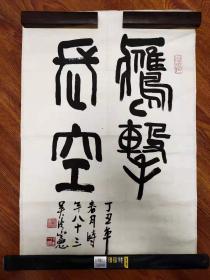 鹰擊
長空
丁丑年
春月時
年八十三